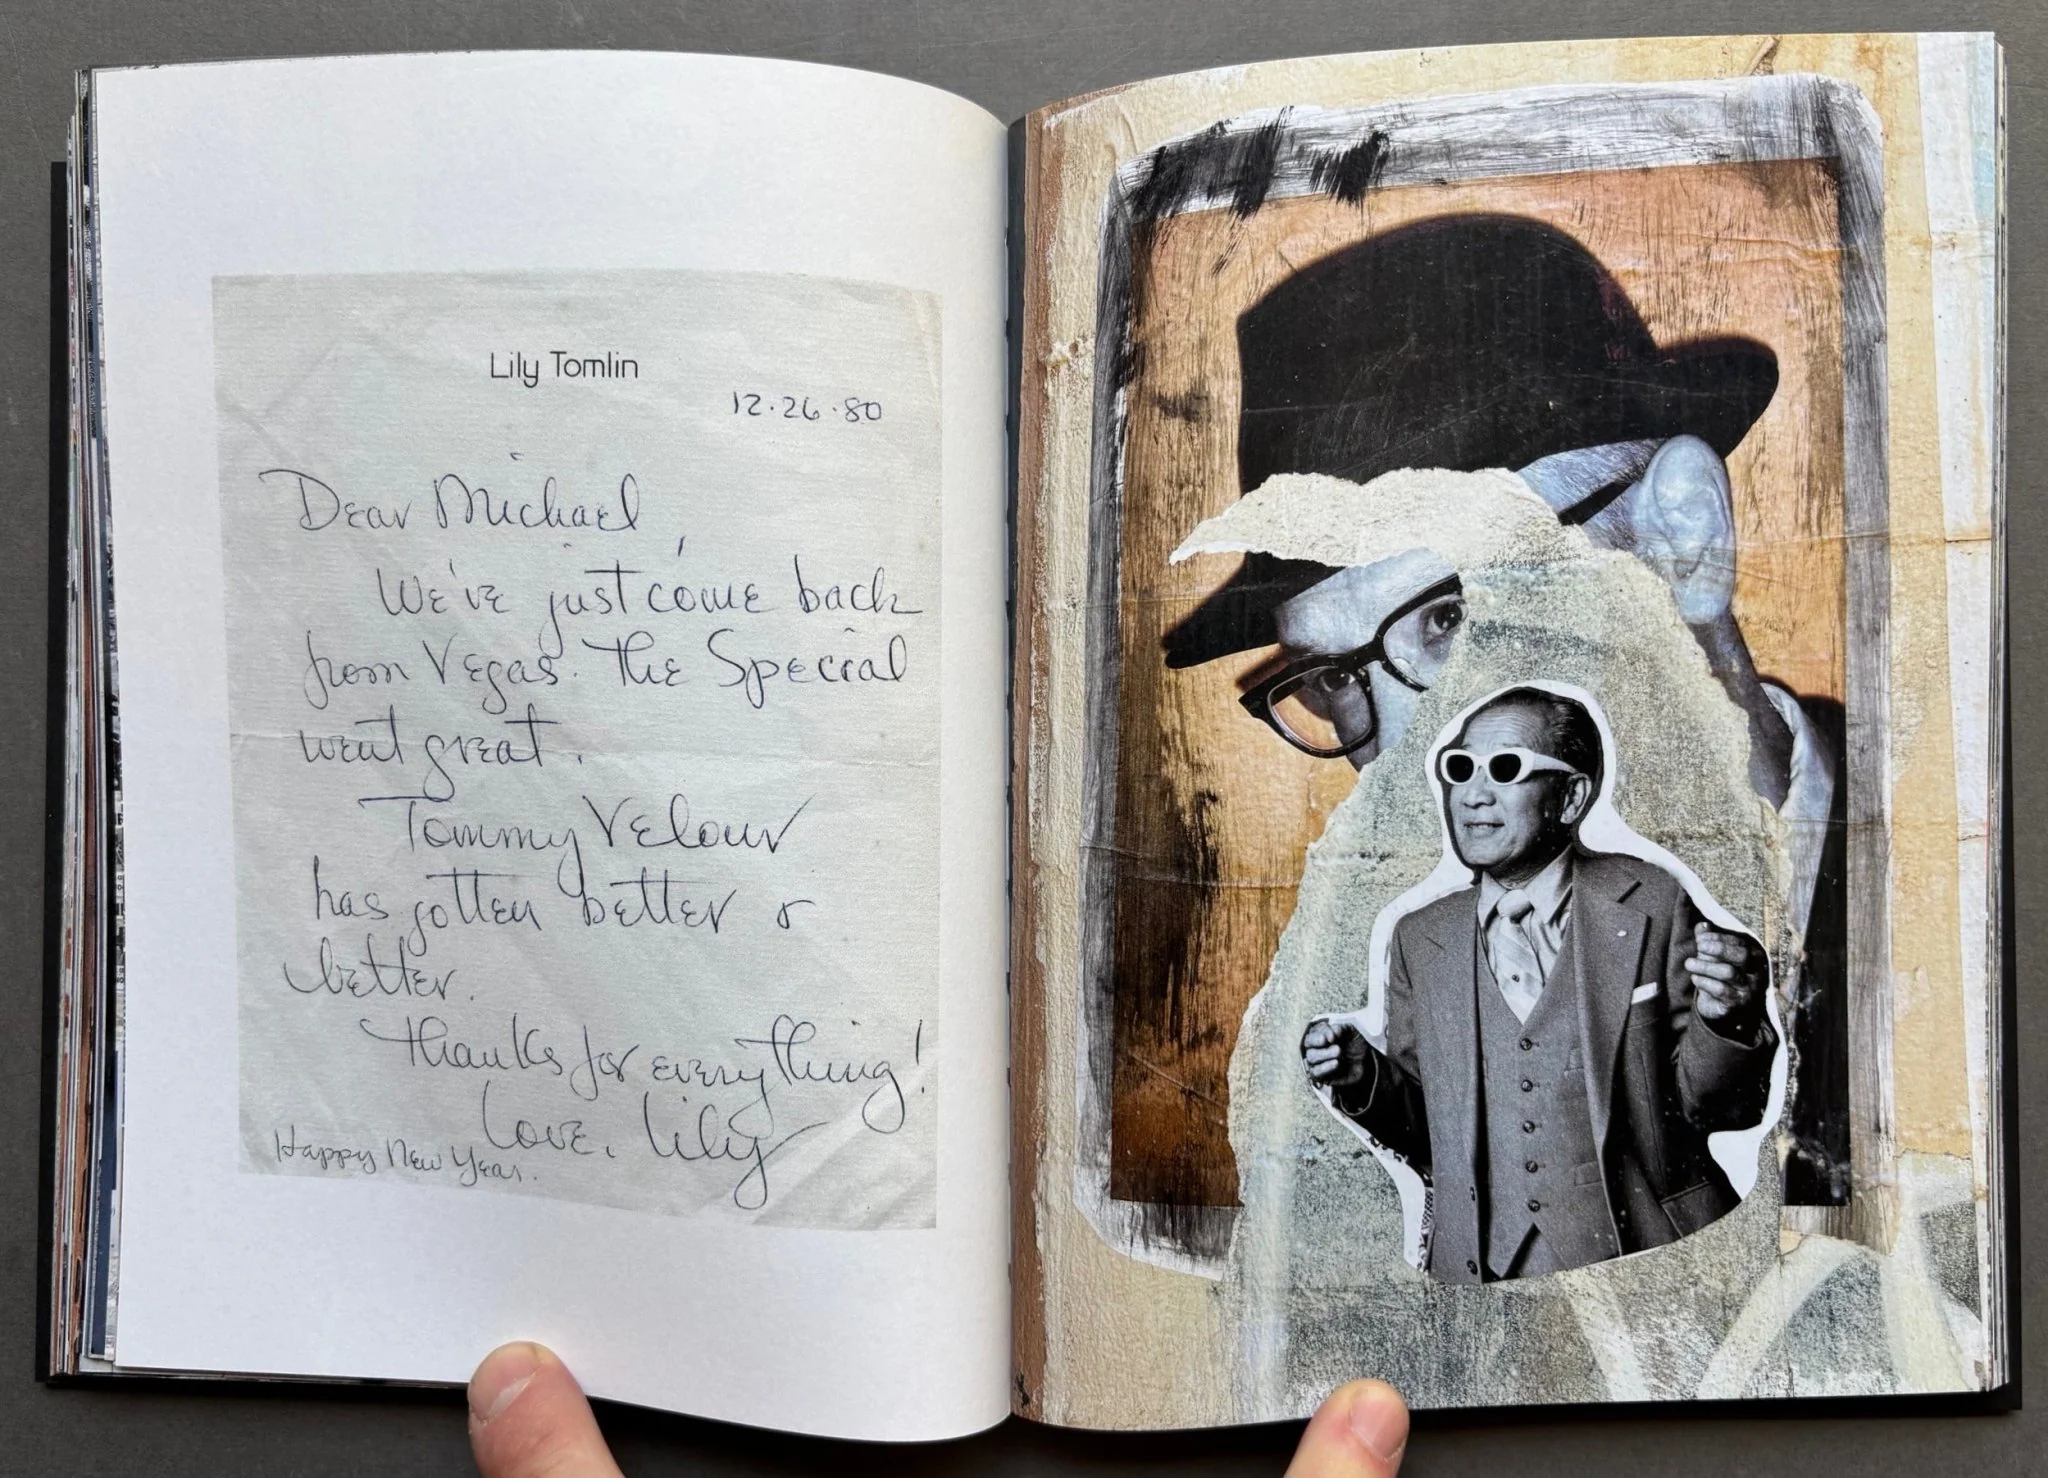 Lily Tomlin
12.26.80
Dear Michael,
We've just come back
from Vegas. The Special
went great.
Tommy Velour
has gotten better &
better.
Thanks for everything!
Love, Lily
Happy New Year.